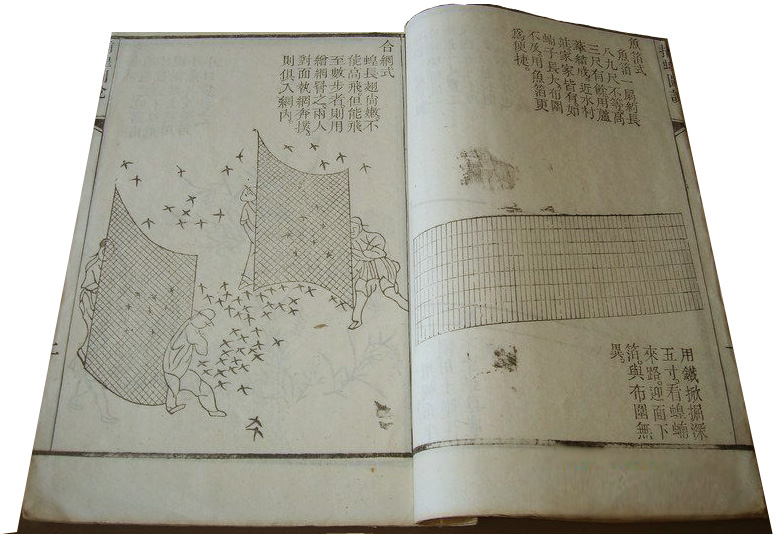 捕蝗圖說
魚箔式
魚箔一扇約長
八九尺不等高
三尺有餘用蘆
葦結成近水村
莊家家皆有如
蝻子長大布圍
不及用魚箔更
爲便捷。
用鐵掀掘深
五寸。看蝗蝻
來路。迎面下
箔。與布圍無
異。
合網式
蝗長翅尚嫩。不
能高飛但能飛
至數步者則用
繒網罾之。兩人
對面執網奔撲。
則俱入網內。